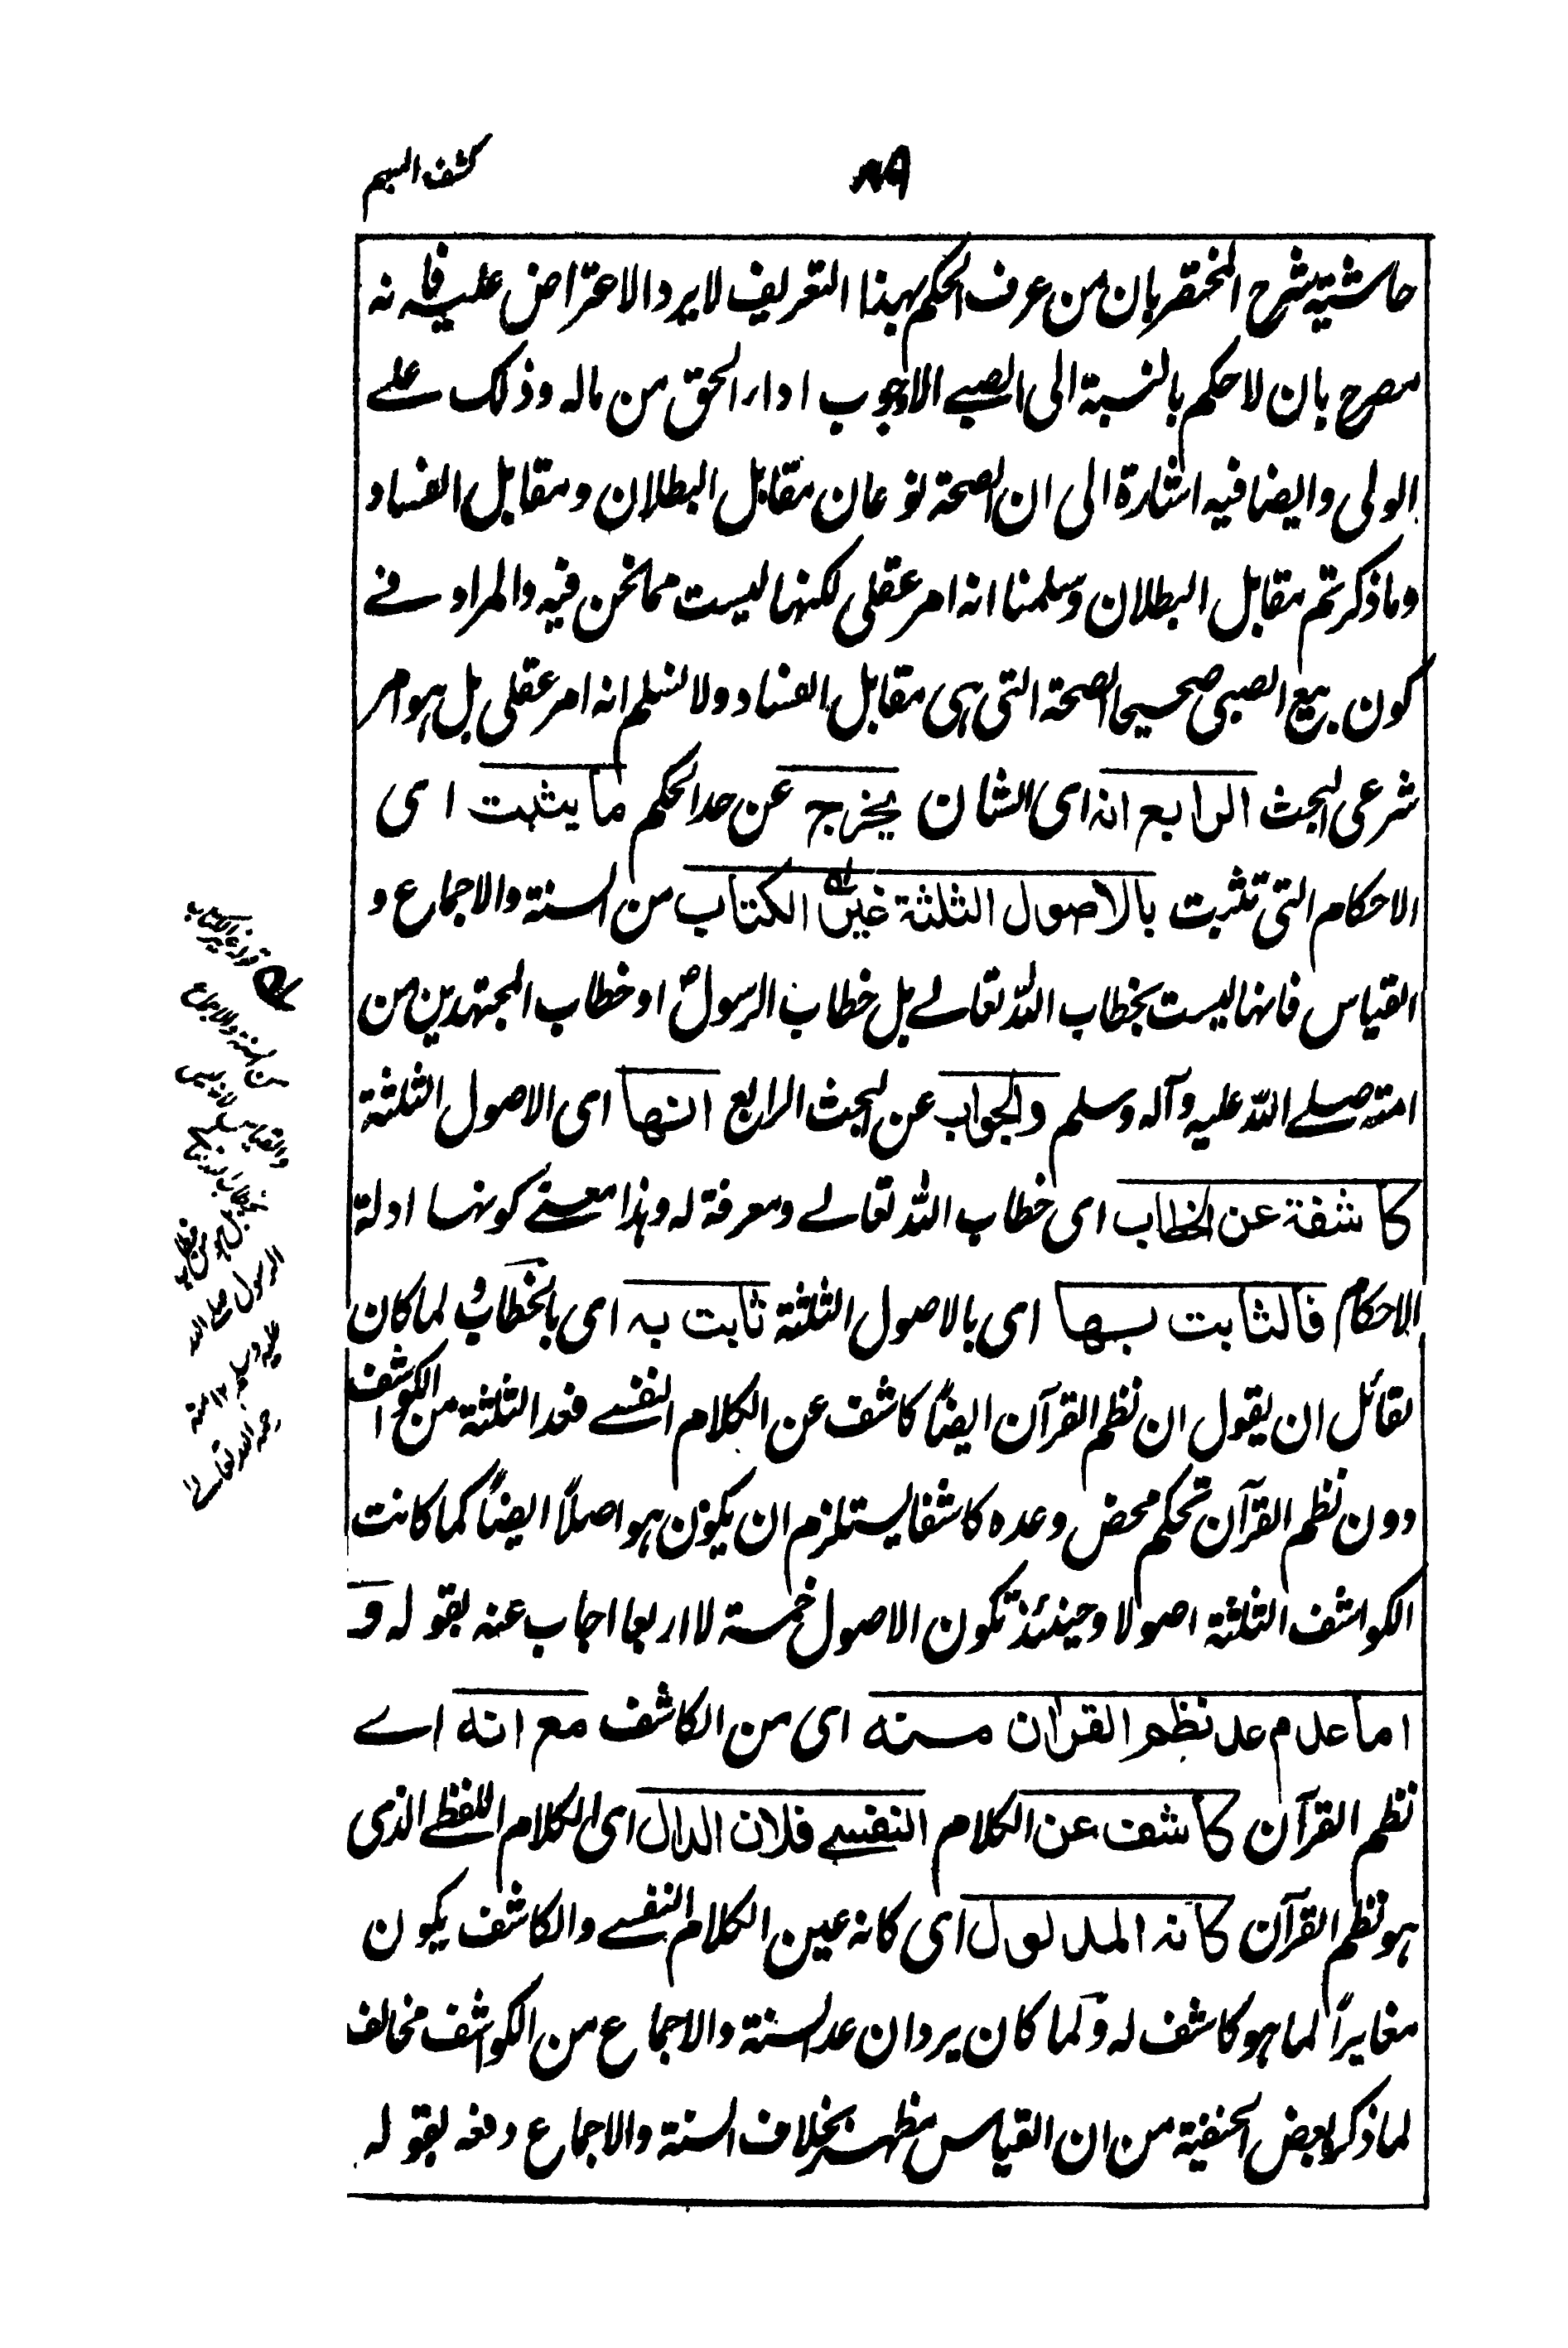 كشف المبهم
٨٩
حاشية شرح المختصر بان من عرف الحكم بهذا التعريف لا يرد الاعتراض عليه فانه
مصرح بان لا حكم بالنسبة الى الصبے الا وجوب اداء الحق من ماله وذلك علے
الولى وايضا فيه اشارة الى ان الصحة نوعان مقابل البطلان ومقابل الفساد
وما ذكرتم مقابل البطلان وسلمنا انه امر عقلى لكنها ليست مما نحن فيه والمراد فے
كون بيع الصبى صحيحا الصحة التى هى مقابل الفساد ولا نسلم انه امر عقلى بل هو امر
شرعى البحث الرابع انه اى الشان يخرج عن حد الحكم ما يثبت اى
الاحكام التى تثبت بالاصول الثلثة غير الكتاب من السنة والاجماع و
القياس فانها ليست بخطاب الله تعالے بل خطاب الرسولؐ او خطاب المجتهدين من
امته صلے الله عليه وآله وسلم والجواب عن البحث الرابع انها اى الاصول الثلثة
كاشفة عن الخطاب اى خطاب الله تعالے ومعرفة له وهذا معنے كونها ادلة
الاحكام فالثابت بها اى بالاصول الثلثة ثابت به اى بالخطاب و لما كان
لقائل ان يقول ان نظم القرآن ايضاً كاشف عن الكلام النفسے فعد الثلثة من الكواشف
دون نظم القرآن تحكم محض وعده كاشفا يستلزم ان يكون هو اصلاً ايضاً كما كانت
الكواشف الثلثة اصولا وحينئذ تكون الاصول خمسة لا اربعا اجاب عنه بقوله و
اما عدم عد نظم القرآن منه اى من الكاشف مع انه اے
نظم القرآن كاشف عن الكلام النفسے فلان الدال اى الكلام اللفظے الذى
هو نظم القرآن كانه المدلول اى كانه عين الكلام النفسے والكاشف يكون
مغايراً لما هو كاشف له ولما كان يرد ان عد السنة والاجماع من الكواشف مخالف
لما ذكر بعض الحنفية من ان القياس مظهر بخلاف السنة والاجماع دفعه بقوله
قوله غير الكتاب
من السنة والاجماع
والقياس
الرسول صلے الله
عليه وسلم ١٢ منه
رحمه الله تعالے